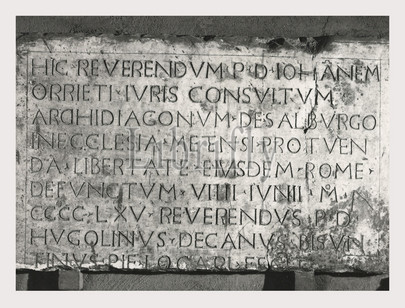 HIC REVERENDVM P · D · IOHANEM
ORRIETI · IVRIS CONSVLTVM
ARCHIDIAGONVM · DESALBVRGO
INECCLESIA METENSI · PROTVEN
DA · LIBERTATE · EIVSDEM · ROME ·
DEFVNCTVM · VIIII · IVNII · M ·
CCCC · LXV · REVERENDVS P D
HVGOLINVS · DECANVS
TINVS · PIE · LOCARI